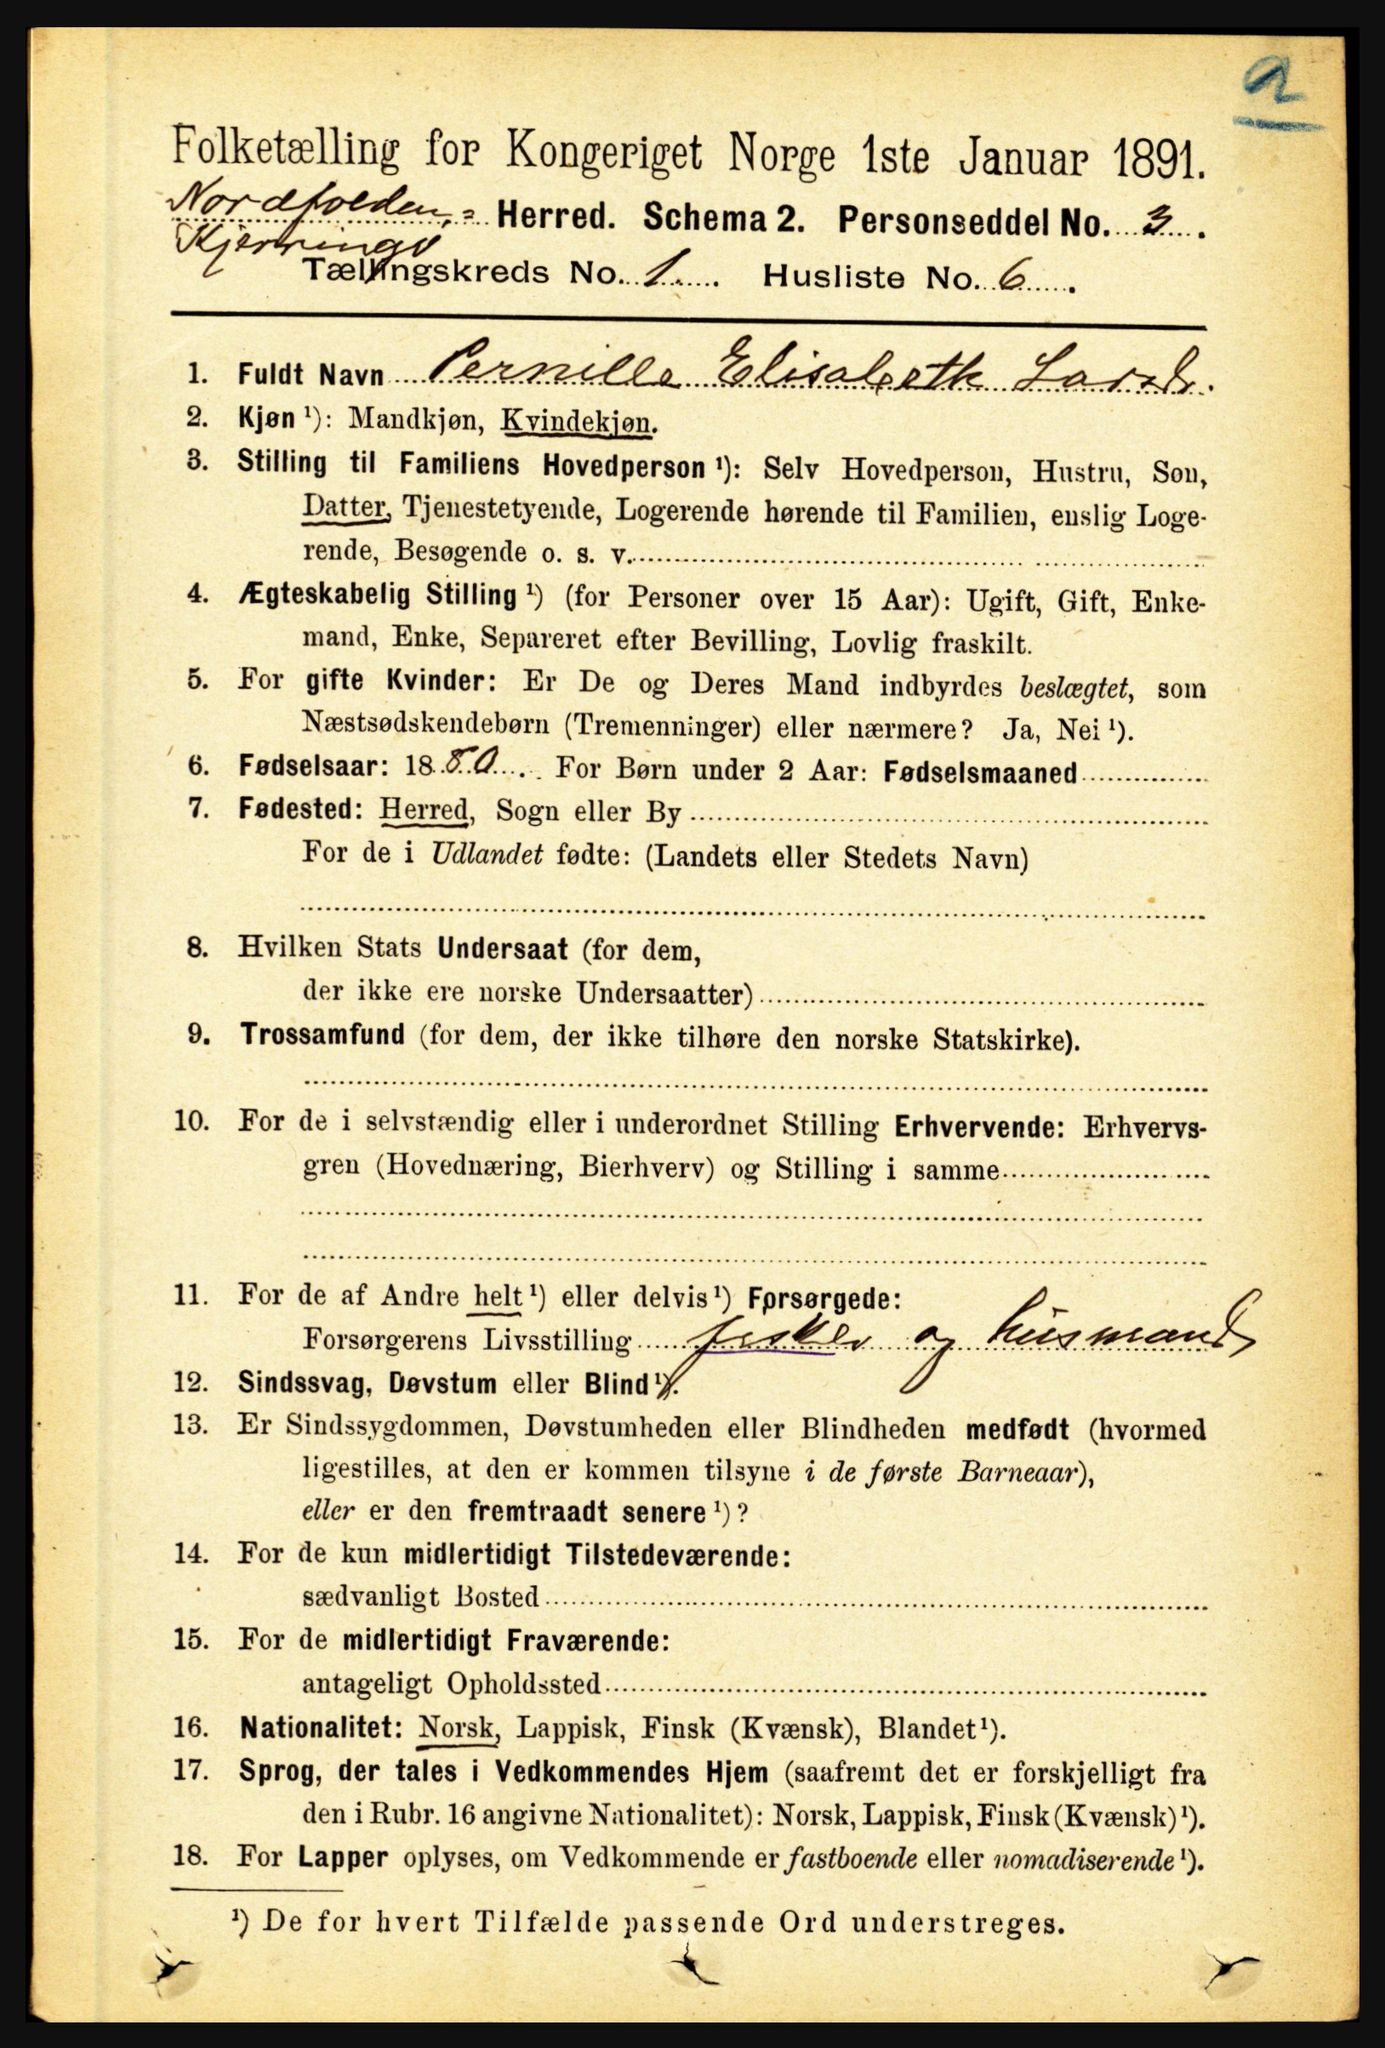 a
Folketælling for Kongeriget Norge 1ste Januar 1891.
Nordfolden- Herred. Schema 2. Personseddel No. 3.
Kjerringø
Tællingskreds No. 1. Husliste No. 6.
1. Fuldt Navn Pernille Elisabeth Larsd.
2. Kjøn ¹): Mandkjøn, Kvindekjøn.
3. Stilling til Familiens Hovedperson ¹): Selv Hovedperson, Hustru, Søn,
Datter, Tjenestetyende, Logerende hørende til Familien, enslig Loge-
rende, Besøgende o. s. v.
4. Ægteskabelig Stilling ¹) (for Personer over 15 Aar): Ugift, Gift, Enke-
mand, Enke, Separeret efter Bevilling, Lovlig fraskilt.
5. For gifte Kvinder: Er De og Deres Mand indbyrdes beslægtet, som
Næstsødskendebørn (Tremenninger) eller nærmere? Ja, Nei ¹).
6. Fødselsaar: 1880. For Børn under 2 Aar: Fødselsmaaned
7. Fødested: Herred, Sogn eller By
For de i Udlandet fødte: (Landets eller Stedets Navn)
8. Hvilken Stats Undersaat (for dem,
der ikke ere norske Undersaatter)
9. Trossamfund (for dem, der ikke tilhøre den norske Statskirke).
10. For de i selvstændig eller i underordnet Stilling Erhvervende: Erhvervs-
gren (Hovednæring, Bierhverv) og Stilling i samme
11. For de af Andre helt ¹) eller delvis ¹) Forsørgede:
Forsørgerens Livsstilling fisker og husmand
12. Sindssvag, Døvstum eller Blind ¹).
13. Er Sindssygdommen, Døvstumheden eller Blindheden medfødt (hvormed
ligestilles, at den er kommen tilsyne i de første Barneaar),
eller er den fremtraadt senere ¹)?
14. For de kun midlertidigt Tilstedeværende:
sædvanligt Bosted
15. For de midlertidigt Fraværende:
antageligt Opholdssted
16. Nationalitet: Norsk, Lappisk, Finsk (Kvænsk), Blandet ¹).
17. Sprog, der tales i Vedkommendes Hjem (saafremt det er forskjelligt fra
den i Rubr. 16 angivne Nationalitet): Norsk, Lappisk, Finsk (Kvænsk) ¹).
18. For Lapper oplyses, om Vedkommende er fastboende eller nomadiserende ¹).
¹) De for hvert Tilfælde passende Ord understreges.